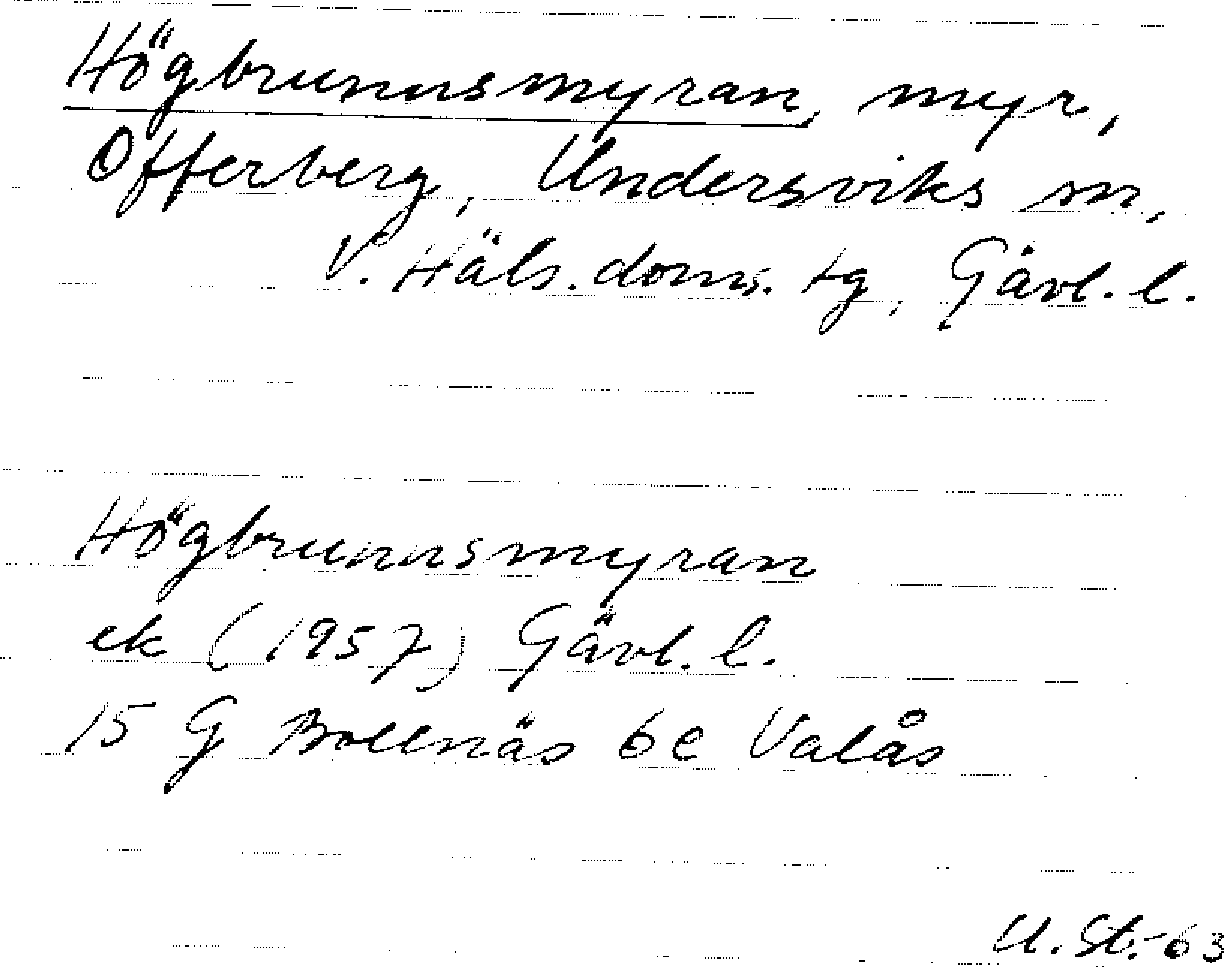 Högbrunnsmyran, myr,
Offerberg, Undersviks sn,
V. Häls. doms. tg, Gävl. l.
Högbrunnsmyran
ek (1957) Gävl. l.
15 G Bollnäs 6e Valås
U. St.-63